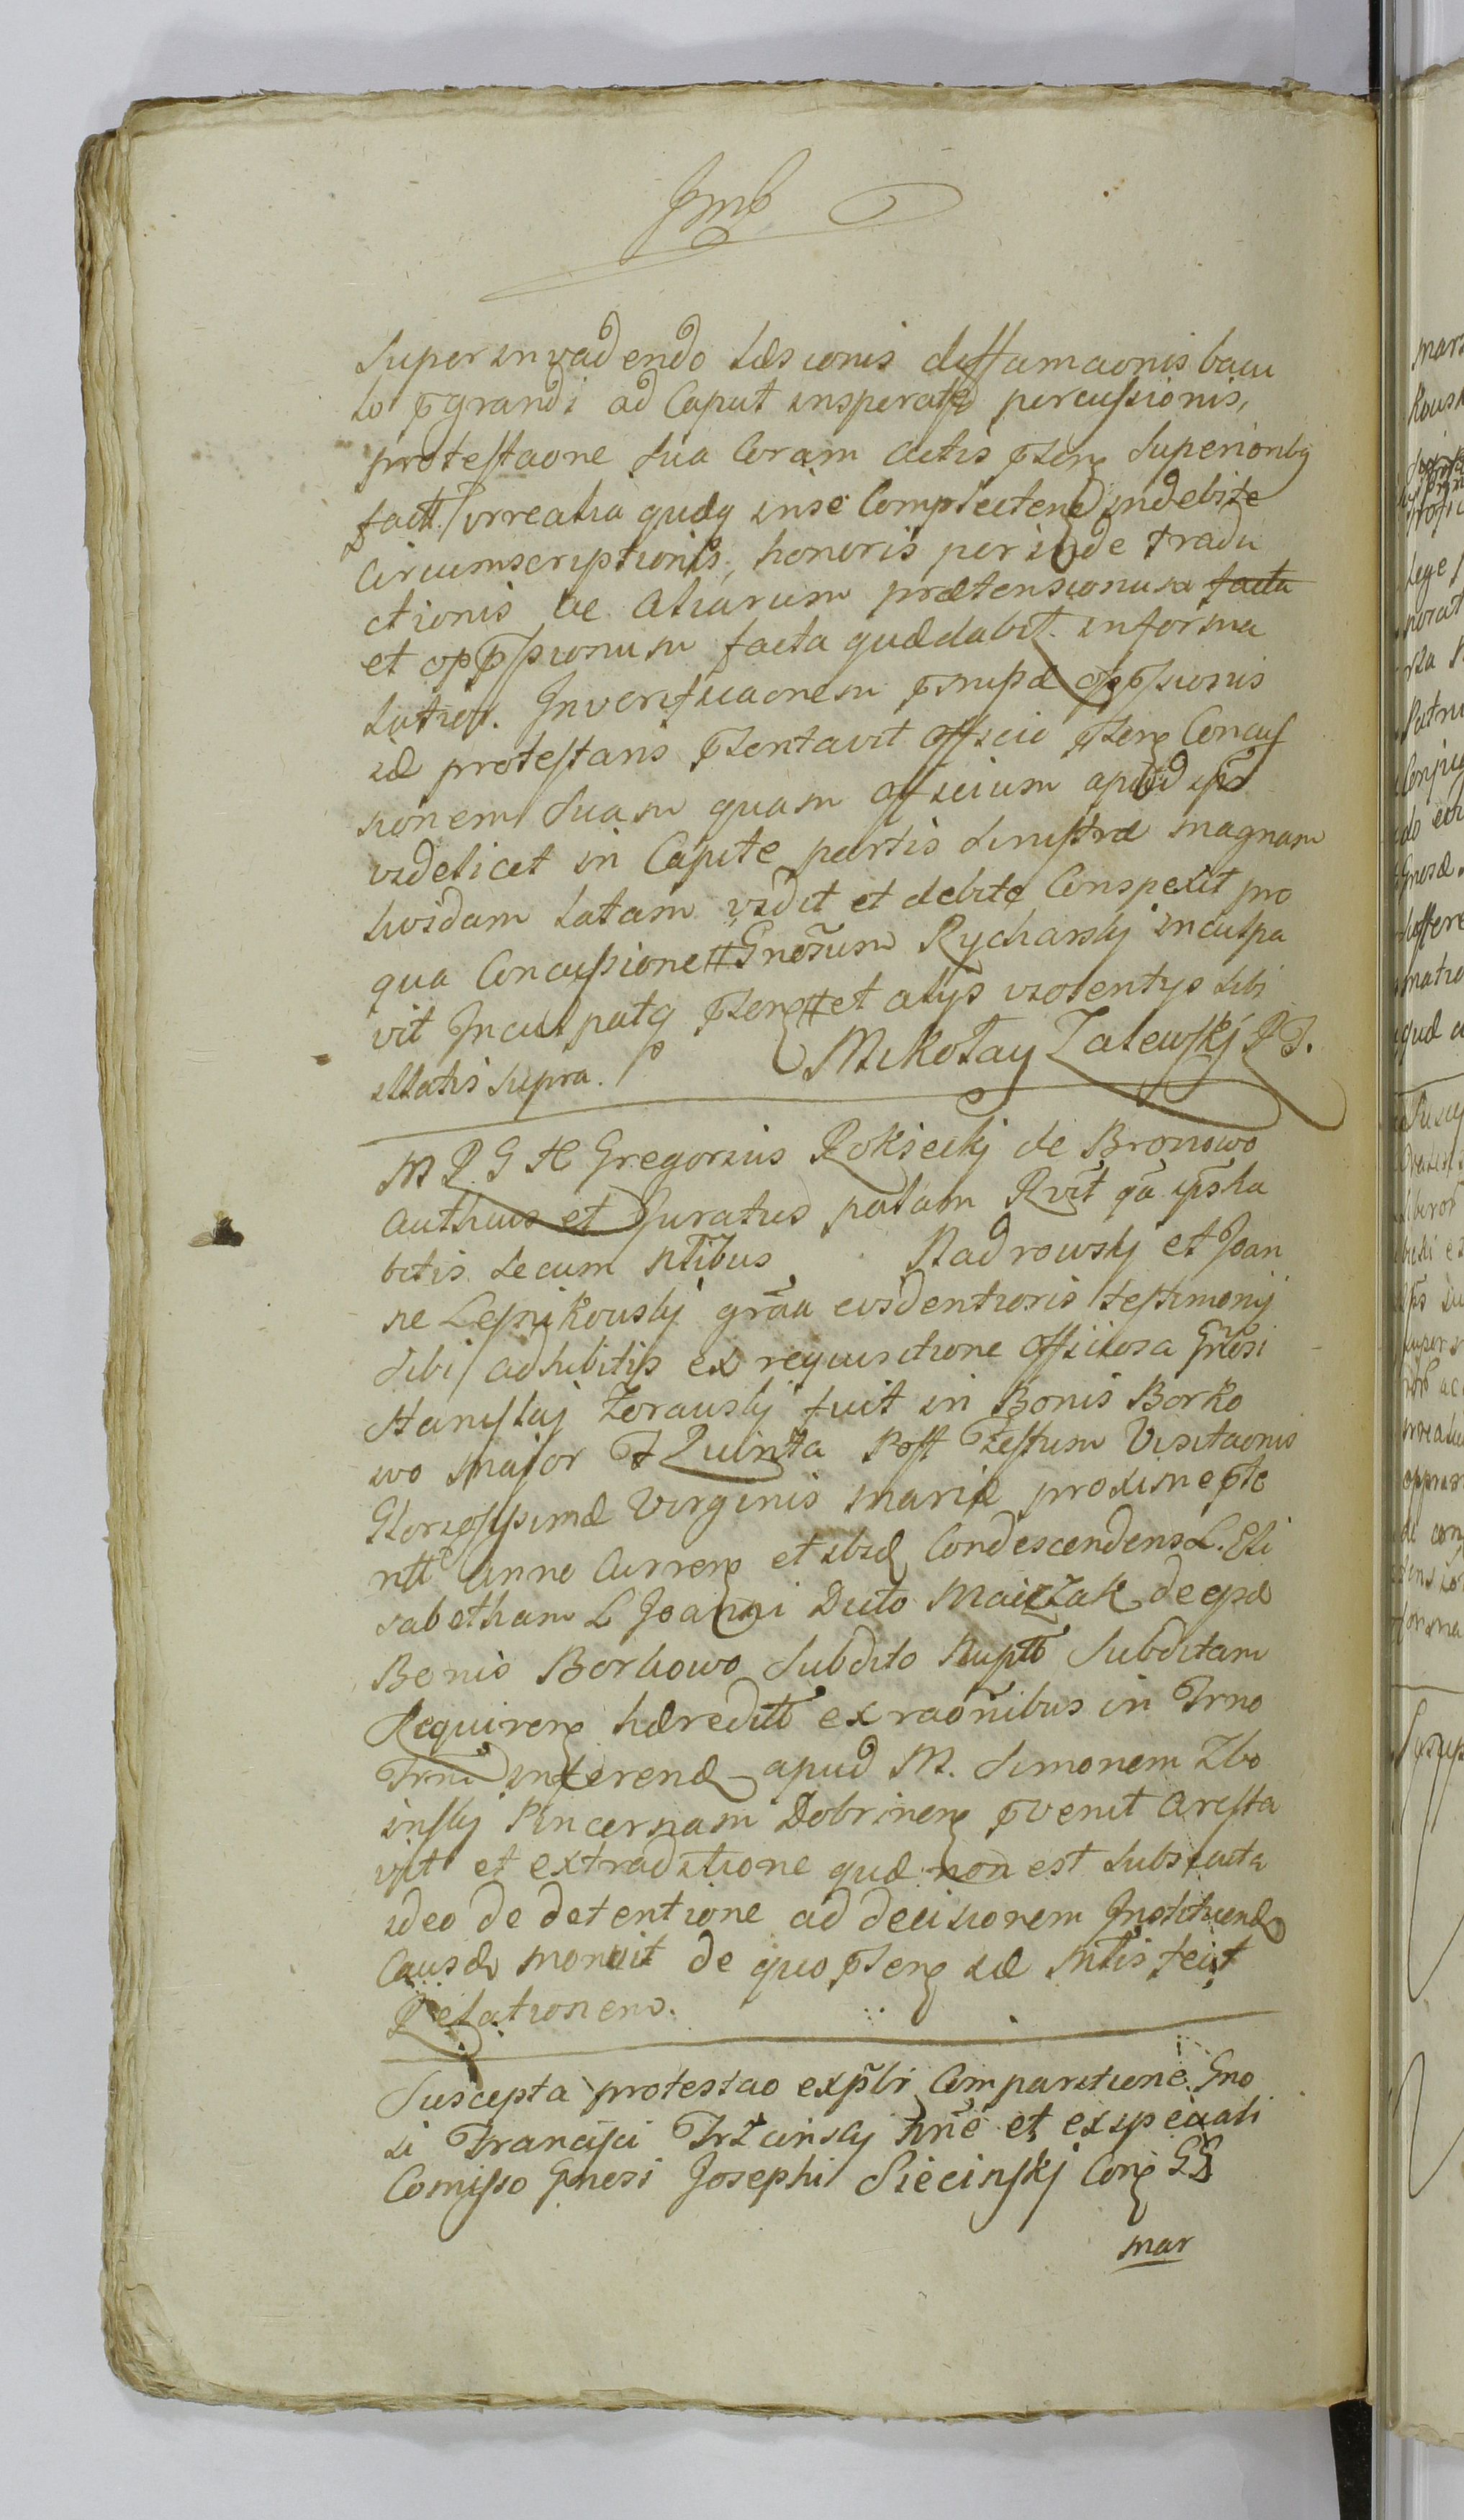 super invadendo læsionis diffamaonis bacu
lo prægrandi ad Caput insperate percussionis,
protestaone sua Coram Actis præsen superioribq
factt irrealia quæq in se Complecten indebite
Circumscriptionis, honoris perinde tradu
ctionis ac aliarum prætensionum facta
et opprssionum facta quæ dabit informa
lutior. In verificaonem præmissæ opprssionis
id protestans præsentavit Officio præsen Concus
sionem suam quam Officium apud ips
videlicet in Capite partis sinistræ magnam
lividam latam vidit et debite Conspexit pro
qua Concussione # Gnosum Rycharskj inculpa
vit Inculpatq præsen # et alijs violentijs sibi
illatis supra. Mikołay Zalewskj P T.
M R G H Gregorius Rokseckj de Bronowo
authus et Juratus palam Rvit qa ips ha
bitis secum ntibus Nadrowskj et Joan
ne Lesnikouskj graa evidentioris testimonij
sibi adhibitis ex requisitione Officiosa Gnosi
Stanislaj Zorauskj fuit in Bonis Borko
wo major F Quinta Post Festum Visitaonis
Gloriosissimæ Virginis mariæ proxime præte
ritt anno Curren et ibid Condescendens L. Eli
sabetham L Joanni Dicto Maiczak de ipsd
Bonis Borkowo subdito Nuptt subditam
Requiren hæreditt ex raonibus in Trno
Trni inferend apud M. Simonem Zbo
inskj Pincernam Dobrinen prævenit aresta
vit et extraditione quæ non est subsecuta
ideo de detentione ad decisionem Instituend
Causæ monuit de quo præsen sd Mtis fecit
Relationem.
Suscepta protestao ex psbi Comparitione Gno
si Francisci Trzcinskj hne et ex speciali
Comisso Gnosi Josephi Siecinskj Con GS
mar